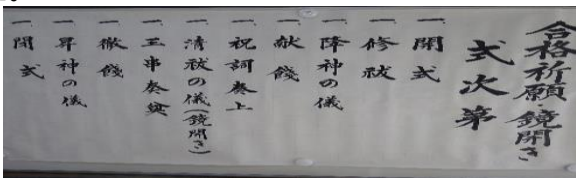 合格祈願・鏡開き
式次第
一、開式
一、修祓
一、降神の儀
一、献饌
一、祝詞奏上
一、清祓の儀(鏡開き)
一、玉串奉奠
一、徹饌
一、昇神の儀
一、閉式